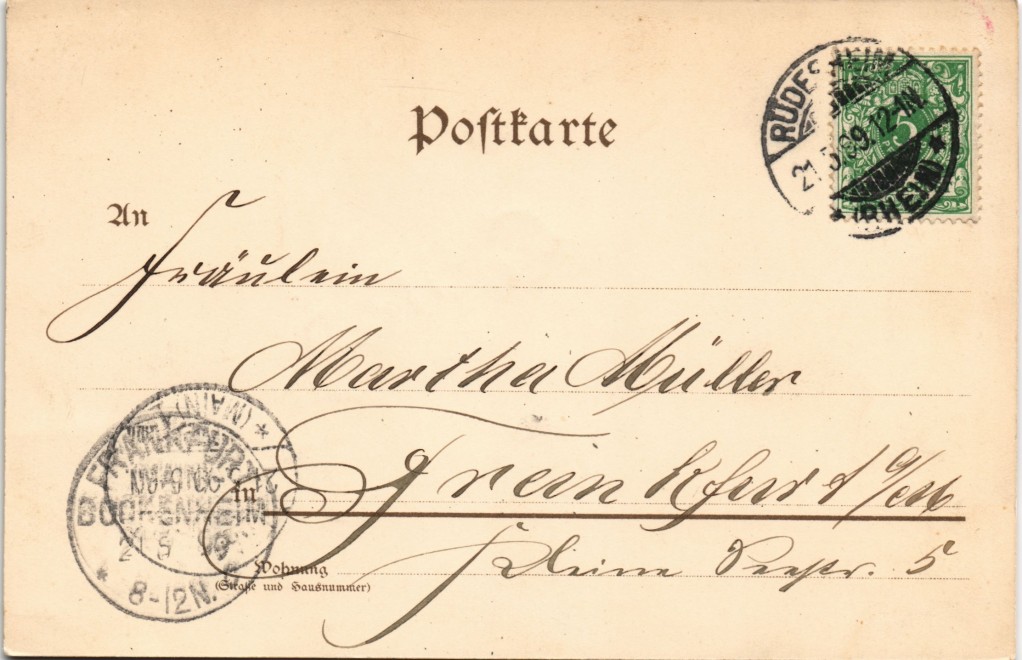 Postkarte
RÜDESHEIM
21.5.99.12-1N.
* (RHEIN) *
5
An
Fräulein
Martha Müller
in Frankfurt a/M
Wohnung
(Straße und Hausnummer)
Kleine Seestr. 5
FRANKFURT (MAIN) *
BOCKENHEIM
8-12N.